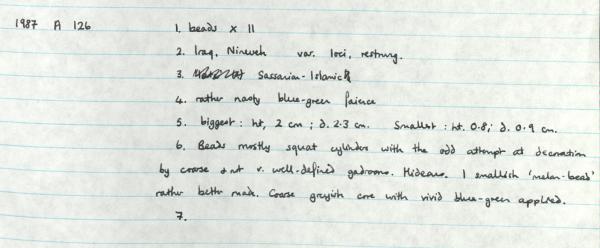 1987 A 126 1. beads x 11
2. Iraq, Nineveh var. loci, restrung.
3. Sassanian-Islamic
4. rather nasty blue-green faience
5. biggest : ht, 2 cm ; d. 2.3 cm. Smallest : ht. 0.8; d. 0.9 cm.
6. Beads mostly squat cylinders with the odd attempt at decoration
by coarse & not v. well-defined gadroons. Hideous. 1 smallish 'melon-bead'
rather better made. Coarse greyish core with vivid blue-green applied.
7.